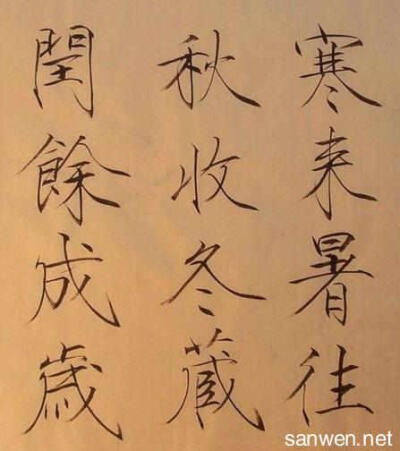 寒来暑往
秋收冬蔵
閏餘成歳
sanwen.net